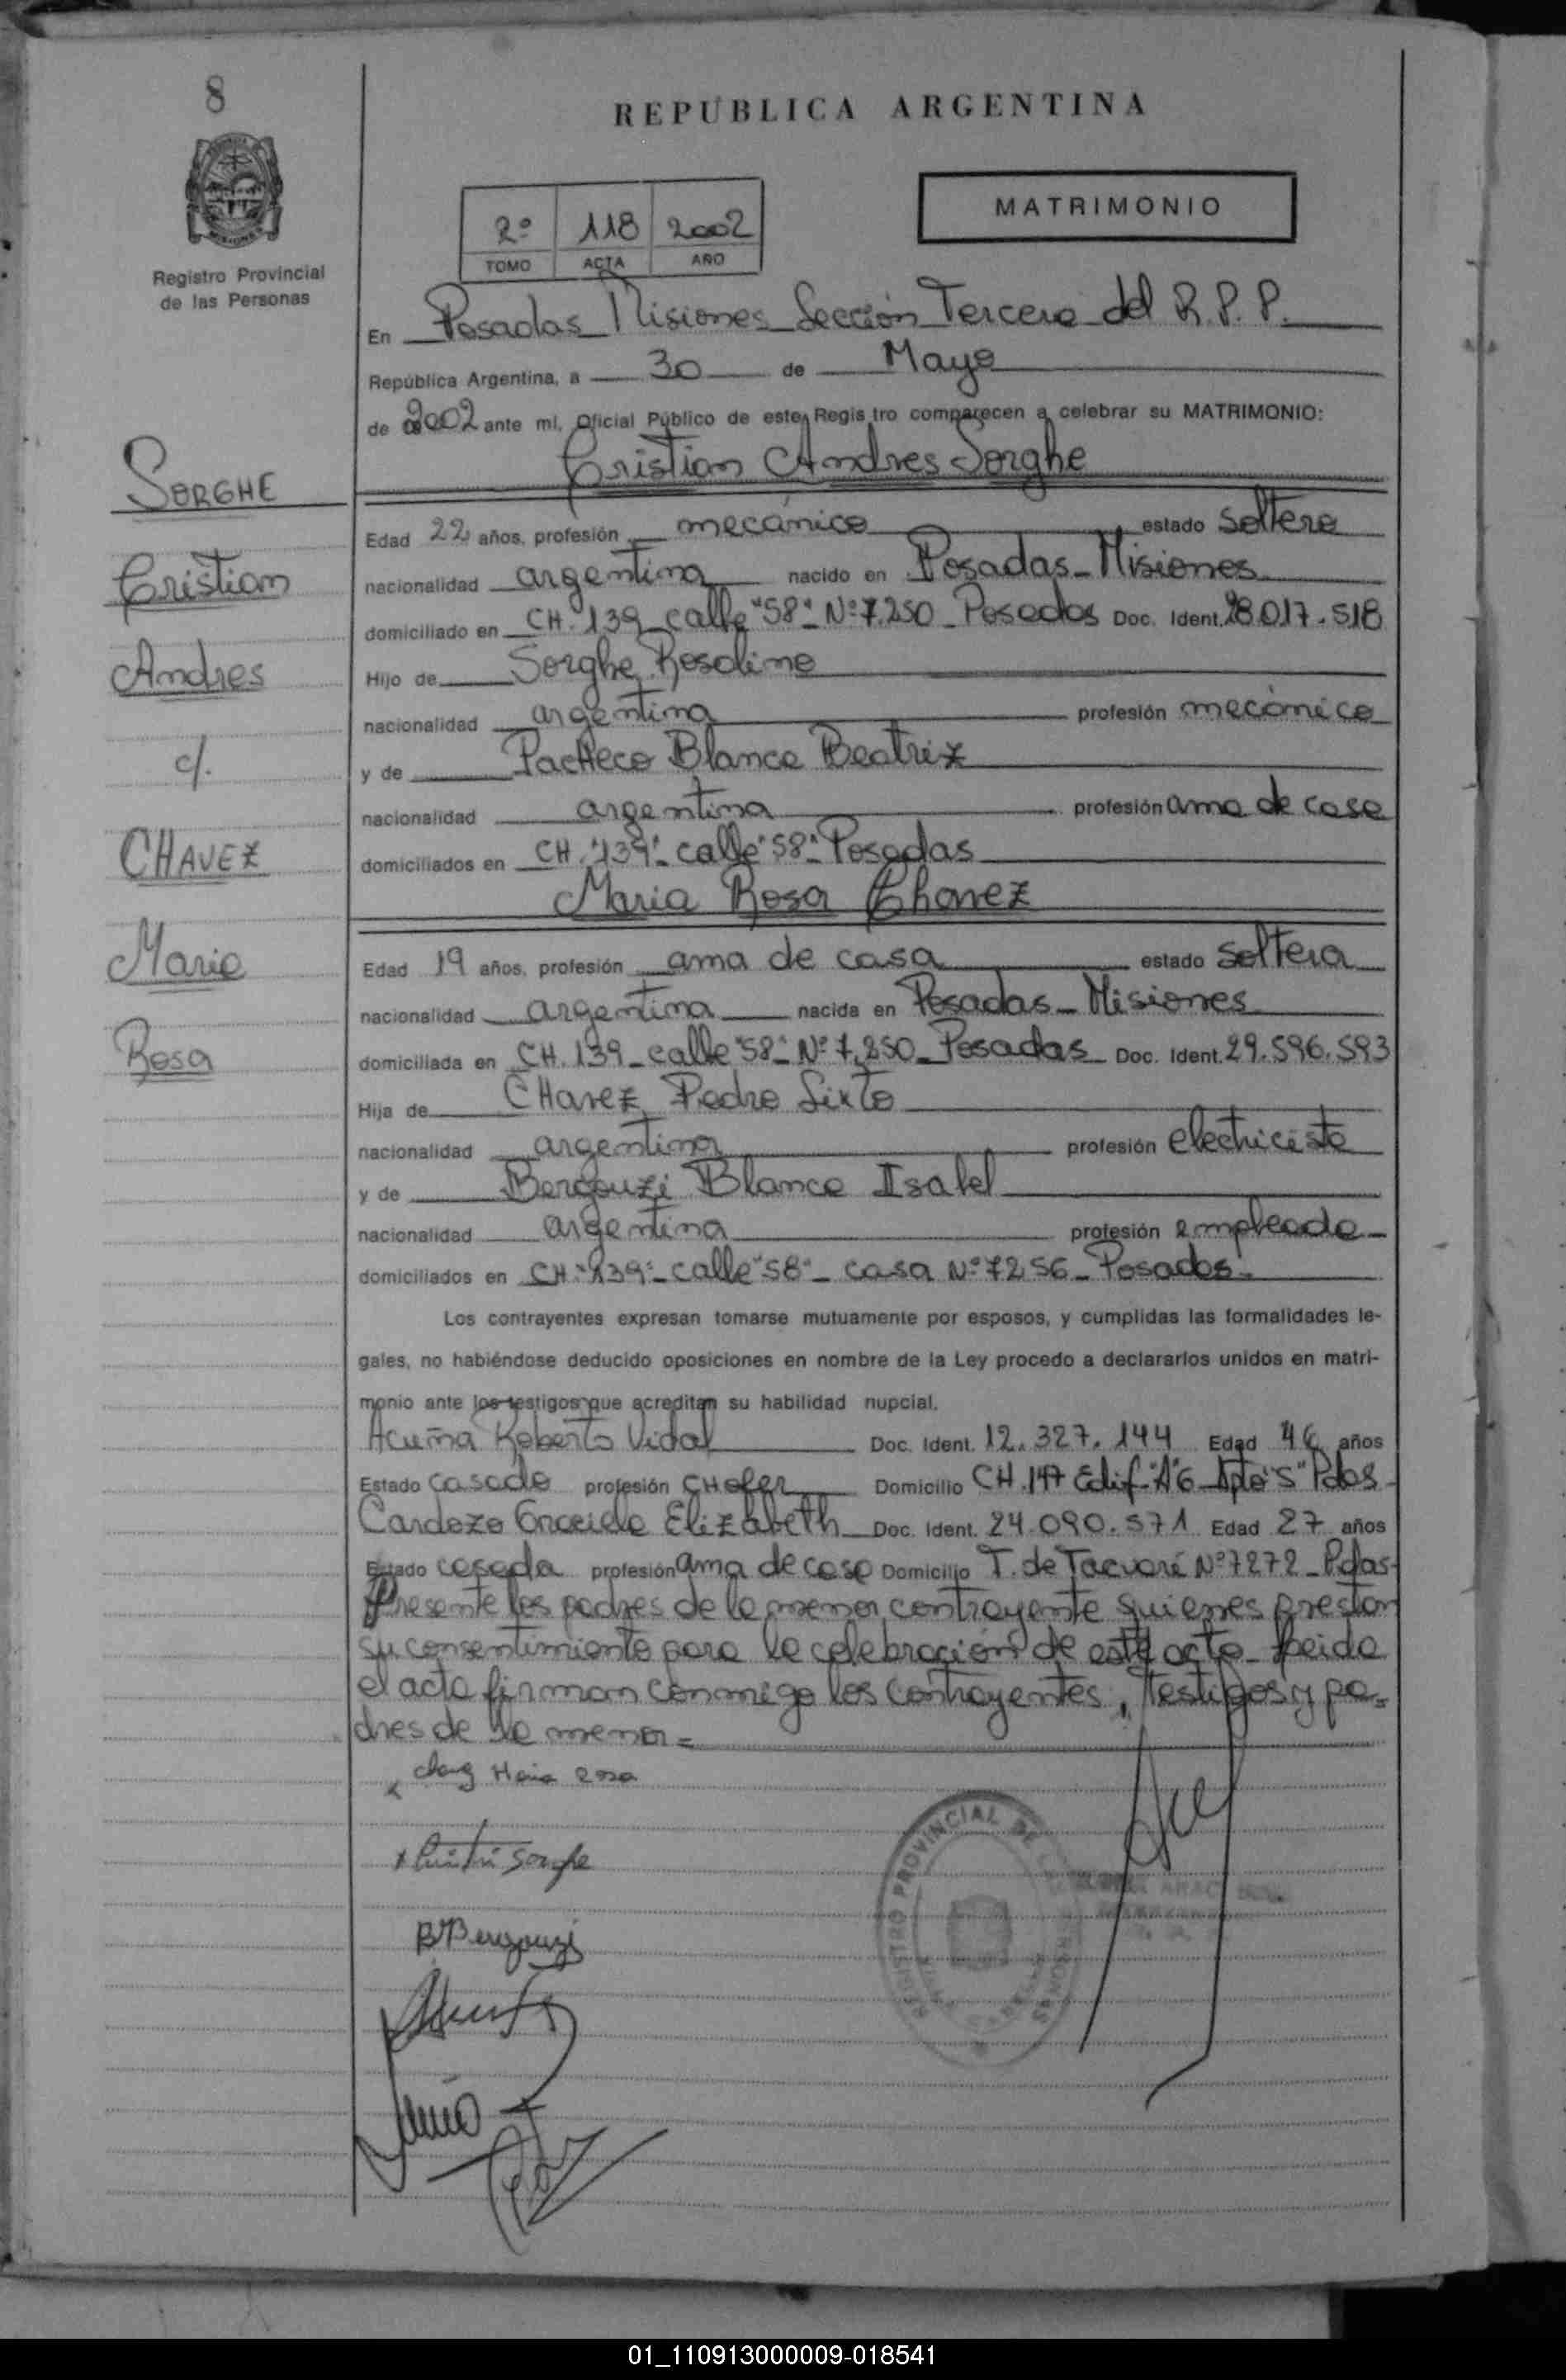 8
REPUBLICA ARGENTINA
MATRIMONIO
2º 118 2002
TOMO ACTA AÑO
Registro Provincial
de las Personas
En Posadas Misiones Sección Tercera del R.P.P.
República Argentina, a 30 de Mayo
de 2002 ante mí, Oficial Público de este Registro comparecen a celebrar su MATRIMONIO:
Cristian Andres Sorghe
SORGHE
Cristian
Andres
c/.
CHAVEZ
Maria
Rosa
Edad 22 años, profesión mecánico estado soltero
nacionalidad argentina nacido en Posadas - Misiones
domiciliado en CH. 139 calle "58" - Nº 7.250 - Posadas Doc. Ident. 28.017.518
Hijo de Sorghe, Rosolino
nacionalidad argentina profesión mecánico
y de Pacheco Blanca Beatriz
nacionalidad argentina profesión ama de casa
domiciliados en CH. "139" - calle "58" - Posadas
Maria Rosa Chavez
Edad 19 años, profesión ama de casa estado soltera
nacionalidad argentina nacida en Posadas - Misiones
domiciliada en CH. 139 - calle "58" - Nº 7.250 - Posadas Doc. Ident. 29.596.593
Hija de CHavez, Pedro Sixto
nacionalidad argentina profesión electricista
y de Bergouzi Blanca Isabel
nacionalidad argentina profesión empleada
domiciliados en CH. "139" - calle "58" - casa Nº 7256 - Posadas -
Los contrayentes expresan tomarse mutuamente por esposos, y cumplidas las formalidades le-
gales, no habiéndose deducido oposiciones en nombre de la Ley procedo a declararlos unidos en matri-
monio ante los testigos que acreditan su habilidad nupcial.
Acuña Roberto Vidal Doc. Ident. 12.327.144 Edad 46 años
Estado casado profesión CHofer Domicilio CH. 147 Edif. "A" 6 Apto "S" Pdas -
Cardozo Graciela Elizabeth Doc. Ident. 24.090.571 Edad 27 años
Estado casada profesión ama de casa Domicilio T. de Tacuaré Nº 7272 - Pdas -
Presente los padres de la menor contrayente quienes prestan
su consentimiento para la celebración de este acto - Leida
el acta firman conmigo los contrayentes, testigos y pa-
dres de la menor =
x Chavez Maria Rosa
x Cristian Sorghe
B Bergouzi
REGISTRO PROVINCIAL DE LAS PERSONAS
01_110913000009-018541